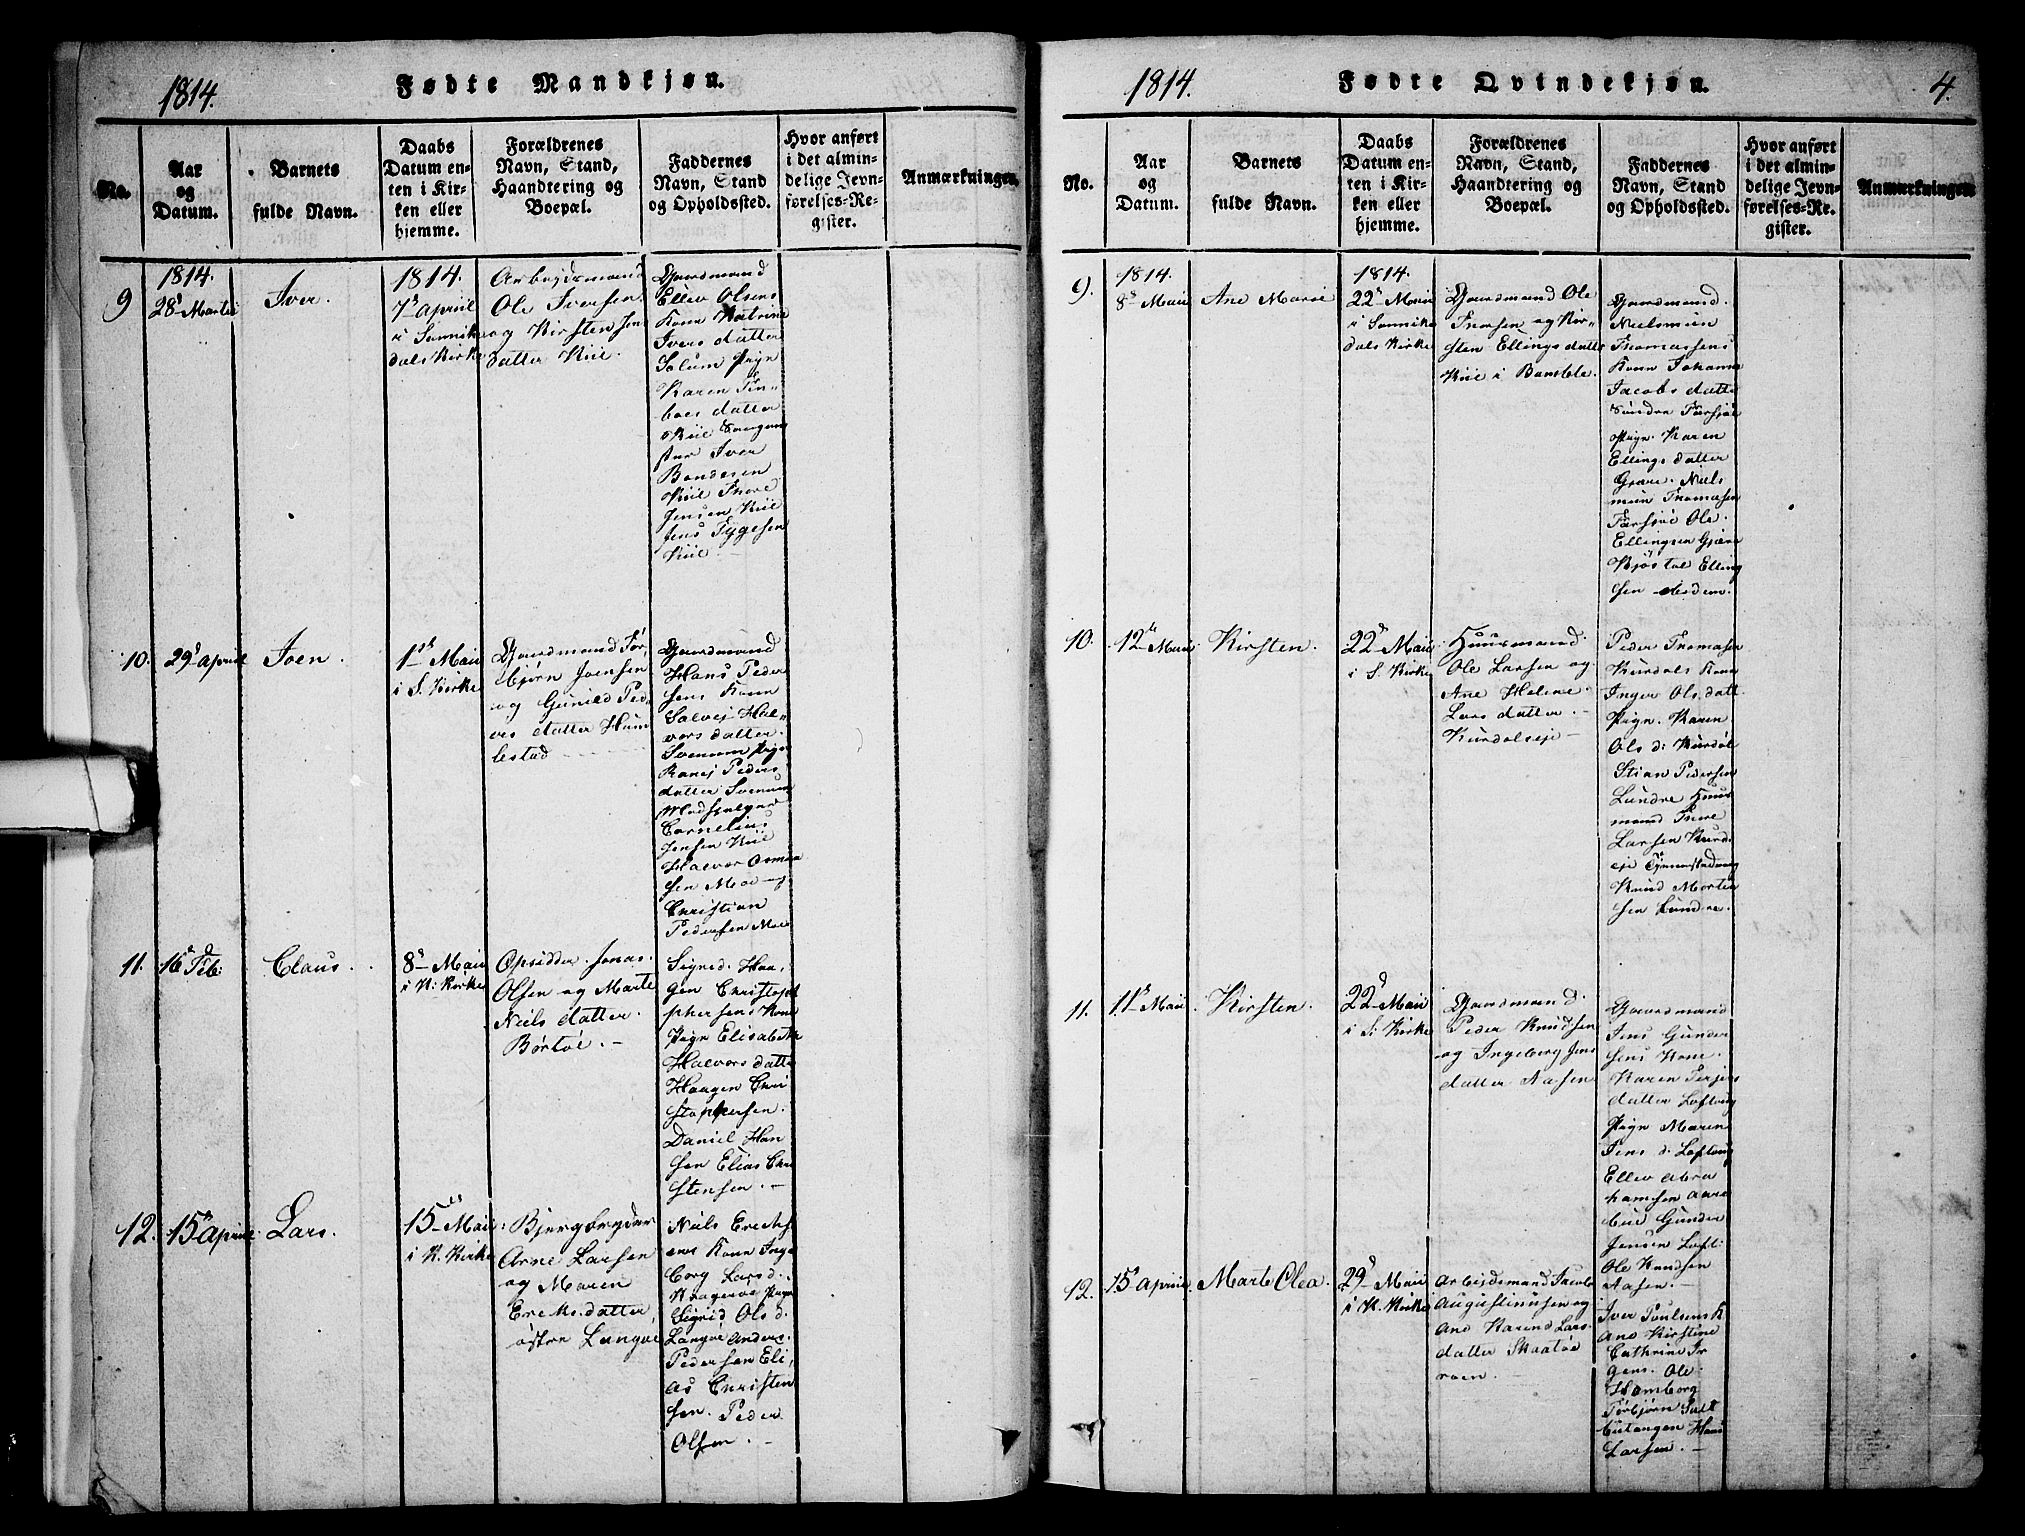 1814.
Fødte Mandkjøn.
No.
Aar
og
Datum.
Barnets
fulde Navn.
Daabs
Datum en-
ten i Kir-
ken eller
hjemme.
Forældrenes
Navn, Stand,
Haandtering og
Boepæl.
Faddernes
Navn, Stand
og Opholdssted.
Hvor anført
i det almin-
delige Jevn-
førelses-Re-
gister.
Anmærkninger.
9
1814.
28d Martii
Iver.
1814.
7d April
i Sannike
dals Kirke
Arbejdsmand
Ole Iversen
og Kirsten Jens
datter Kiil.
Gaardmand
Ellev Olsens
Kone Katrine
Ivers datter
Solum Pign
Karen
boes datter
Kiil
Iver
Bondesen
Kiil Thore
Jensen Kiil
Jens Tygesen
Kiil. –
10.
29d April
Joen.
1ste Maii
i S. Kirke
Gaardmand Tor
bjørn Joensen
og Gunild Ped
ers datter Hum
lestad
Gaardmand
Hans Peder
sens Kone
Salvej Hal-
vors datter.
Svenum Pign
Ranej Peders
datter Svenum
Cornelius
Jensen Kiil
Halvor Osmun
sen Moe og
Christian
Pedersen Moe
11.
16d Feb:
Claus.
8d Maii
i K: Kirke
Opsidder Jonas
Olsen og Marte
Niels datter.
Børtøe. –
Sigrid Haa,
gen Christoph
phersens Kone
Pign Elisabeth
Halvors datter
Haagen Chri
stophersen.
Daniel Han
sen Elias Chri
stensen. –
12.
15d April
Lars.
15d Maii
i K. Kirke
Bjergbryder
Arne Larsen
og Maren
Ereks. datter
østre Langøe
Niels Ereks
ens Kone Inge
borg Lars d.
Kragerøe Pign
Sigrid Ols d.
Langøe Anders
Pedersen Eli,
as Christen
sen. Peder
Olsen. –
1814.
Fødte Qvindekjøn.
4.
No.
Aar
og
Datum.
Barnets
fulde Navn.
Daabs
Datum en-
ten i Kir-
ken eller
hjemme.
Forældrenes
Navn, Stand,
Haandtering og
Boepæl.
Faddernes
Navn, Stand
og Opholdssted.
Hvor anført
i det almin-
delige Jevn-
førelses-Re-
gister.
Anmærkninger.
9.
1814.
8d Maii
Ane Marie
1814.
22d Maii
i Sannike
dals Kirke
Gaardmand Ole
Thorsen og Kir-
sten Ellings datter
Kiil i Bamble.
Gaardmand.
Nielsmun
Thomassens
Kone Johanne
Jacobs datter
Søndre Farsjøe
Pign. Karen
Ellings datter
Gjære. Niels
mun Thomasen
Farsjøe Ole.
Ellingsen Gjære
Kjøstol Elling
sen ibidem.
10.
12te Maii
Kirsten.
22d Maii
i S. Kirke
Huusmand.
Ole Larsen og
Ane Helene.
Lars datter. –
Kurdøleje –
Peder Thomasen
Kurdøls Kone
Inger Ols datt.
Pign. Karen
Ols d: Kurdøl
Stian Pedersen
Lundre Huus
mand Thore
Larsen Kurd
eje
Knud Morten
sen Lundre.
11.
11te Maii
Kirsten.
22d Maii
i S: Kirke
Gaardmand.
Peder Knudsen
og Ingeborg Jens
datter Aasen
Gaardmand
Jens Gunder
sens Kone.
Karen Terjes
datter Loftvig
Pign Maren
Jens d: Loftvig
Ellev Abra
hamsen Aare
bue Gunder
Jensen Loft:
Ole Knudsen
Aasen. –
12.
15d April.
Marte Olea.
29d Maii
i K. Kirke
Arbeidsmand Jacob
Augustinusen og
Ane Karine Lars.
datter Skaatøe
roen. –
Iver Poulsens K
Ane Kirstine
Cathrine Jr
gens. Ole
Hamborg
Torbjørn Salt
butangen Hans
Larsen. –